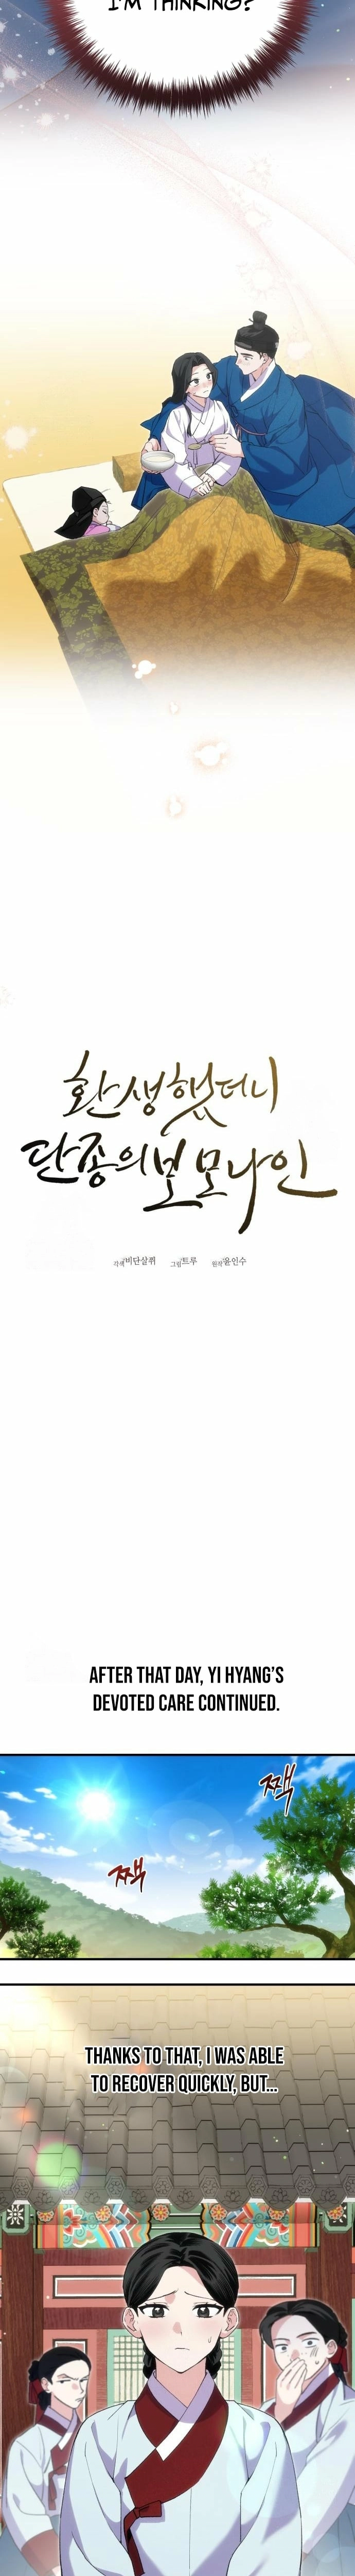 I'M THINKING?
환생했더니
단종의 보모나인
각색 비단살쾡 그림 트루 원작 윤인수
AFTER THAT DAY, YI HYANG'S
DEVOTED CARE CONTINUED.
짹
짹
THANKS TO THAT, I WAS ABLE
TO RECOVER QUICKLY, BUT...